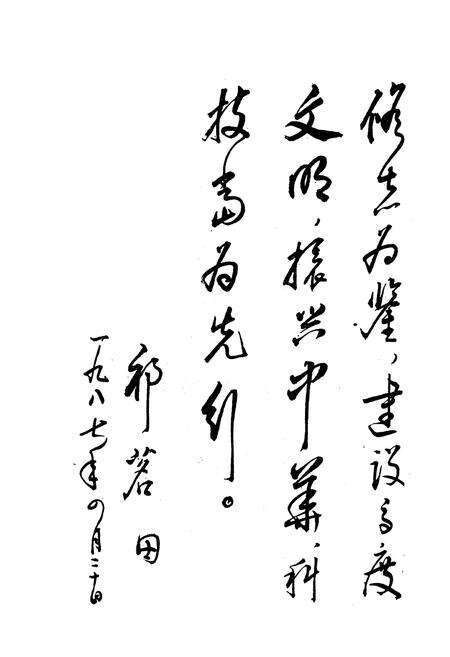 修志为鉴，建设高度
文明，振兴中华，科
技当为先行。
祁茗田
一九八七年四月二十日